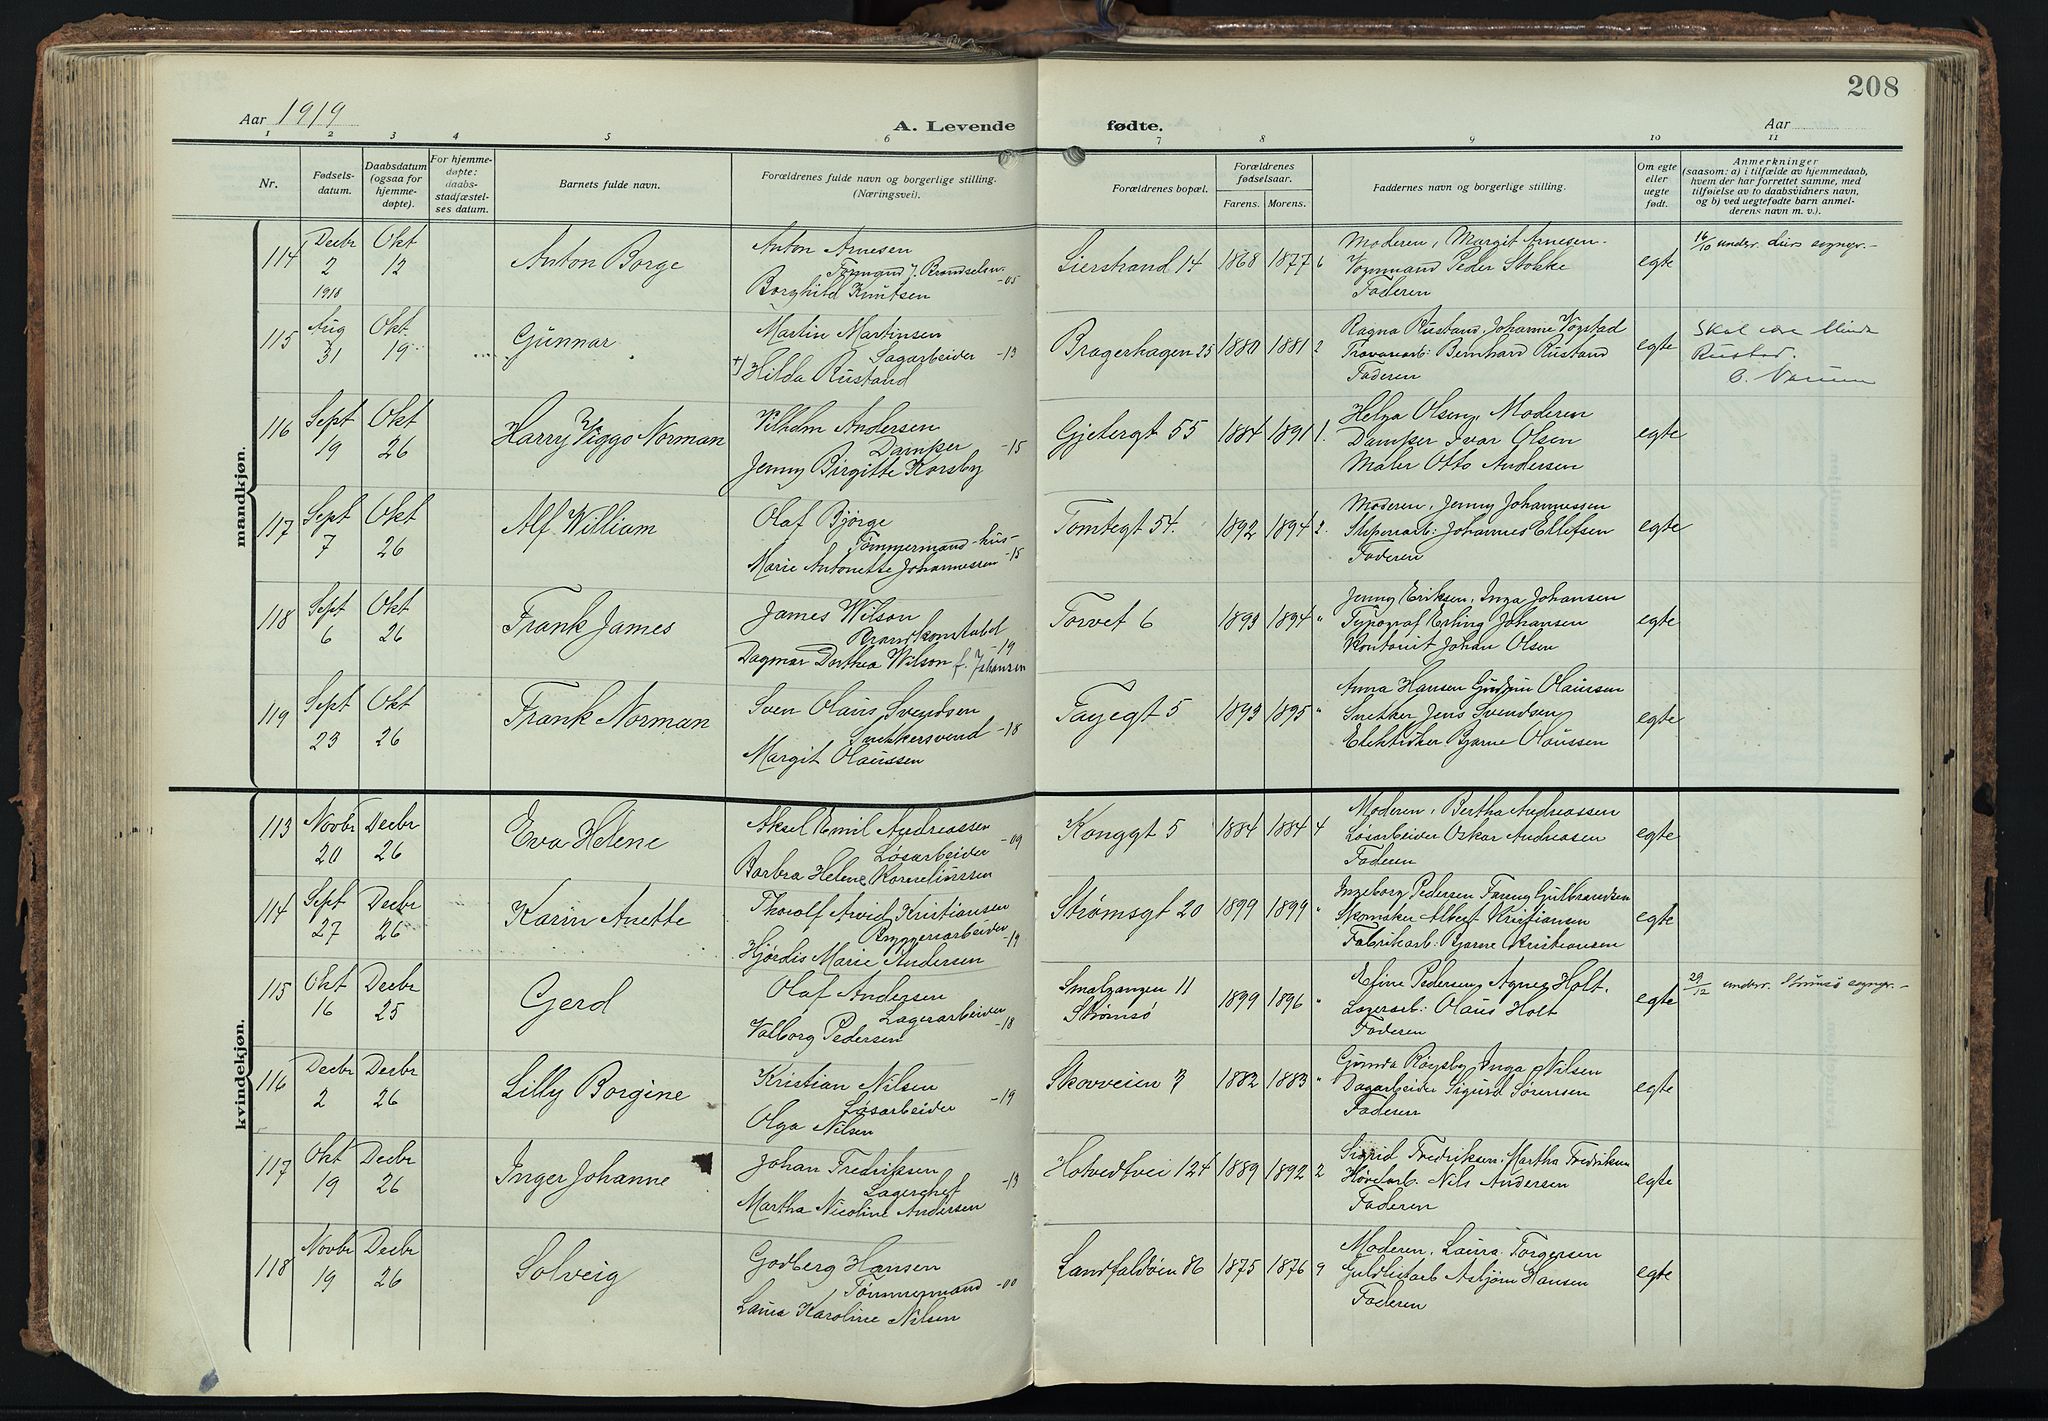 208
Aar 1919
A. Levende fødte.
Aar
1 2 3 4 5 6 7 8 9 10 11
Nr.
Fødsels-
datum.
Daabsdatum
(ogsaa for
hjemme-
døpte).
For hjemme-
døpte:
daabs-
stadfæstel-
ses datum.
Barnets fulde navn.
Forældrenes fulde navn og borgerlige stilling.
(Næringsvei).
Forældrenes bopæl.
Forældrenes
fødselsaar.
Farens. Morens.
Faddernes navn og borgerlige stilling.
Om egte
eller
uegte
født.
Anmerkninger
(saasom: a) i tilfælde av hjemmedaab,
hvem der har forrettet samme, med
tilføielse av to daabsvidners navn,
og b) ved uegtefødte barn anmel-
derens navn m. v.).
mandkjøn.
114 Decbr 2 1918 Okt 12 Anton Borge
Anton Arnesen
Formand v. Brandselen -05
Borghild Knutsen
Lierstrand 14 1868 1877 6
Moderen, Margit Arnesen.
Vognmand Peder Stokke
Faderen
egte
16/10 underr. Liers sognepr.-
115 Aug 31 Okt 19 Gunnar
Martin Martinsen
Sagarbeider -13
+) Hilda Rustand
Bragerhagen 25 1880 1881 2
Ragna Rustand, Johanne Vogstad
Travarearb: Bernhard Rustand
Faderen
egte
Skal være
Rustad.
116 Sept 19 Okt 26 Harry Viggo Norman
Vilhelm Andersen
Damper -15
Jenny Birgitte Korsby
Gjetergt 55 1884 1891 1.
Helga Olsen, Moderen
Damper Ivar Olsen
Maler Otto Andersen
egte
117 Sept 7 Okt 26 Alf William
Olaf Bjørge
Tømmermand -hus-
Marie Antonette Johannessen -15
Tomtegt 54. 1892 1894 2.
Moderen, Jenny Johannessen
Sliperiarb: Johannes Ellefsen
Faderen
egte
118 Sept 6 Okt 26 Frank James
James Wilson
Brandkonstabel -19
Dagmar Dorthea Wilson f. Johansen
Torvet 6 1893 1894 "
Jenny Eriksen, Inga Johansen
Typograf Erling Johansen
Kontorist Johan Olsen
egte
119 Sept 23 Okt 26 Frank Norman
Sven Olaus Svendsen
Snekkersvend -18
Margit Olaussen
Fayegt 5 1893 1895 "
Anna Hansen Gudrun Olaussen
Snekker Jens Svendsen
Elektriker Bjarne Olaussen
egte
kvindekjøn.
113 Novbr 20 Decbr 26 Eva Helene
Aksel Emil Andreassen
Løsarbeider -09
Barbra Helene Korneliussen
Konggt 5 1884 1884 4
Moderen, Bertha Andreassen
Løsarbeider Oskar Andreasen
Faderen
egte
114 Sept 27 Decbr 26 Karin Anette
Thorolf Arvid Kristiansen
Bryggeriarbeider -19
Hjørdis Marie Andersen
Strømsgt 20 1899 1899 "
Ingeborg Pedersen Fanny Gulbrandsen
Skomaker Albert Kristiansen
Fabrikarb: Bjarne Kristiansen
egte
115 Okt 16 Decbr 25 Gerd
Olaf Andersen
Lagerarbeider -18
Valborg Pedersen
Smalgangen 11
Strømsø 1899 1896 "
Eline Pedersen, Agnes Holt.
Lagerarb: Olaus Holt
Faderen
egte
29/12 underr. Strømsø sognepr.-
116 Decbr 2 Decbr 26 Lilly Borgine
Kristian Nilsen
Løsarbeider -19
Olga Nilsen
Skovveien 3 1882 1883 "
Gunda Røysby, Inga Nilsen
Dagarbeider Sigurd Sørensen
Faderen
egte
117 Okt 19 Decbr 26 Inger Johanne
Johan Fredriksen
Lagerchef -13
Martha Nicoline Andersen
Hotvedtvei 124 1889 1892 2
Sigrid Fredriksen, Martha Fredriksen
Høvelarb. Nils Andersen
Faderen
egte
118 Novbr 19 Decbr 26 Solveig
Godberg Hansen
Tømmermand -00
Laura Karoline Nilsen
Landfaldøien 86 1875 1876 9
Moderen, Laura Torgersen
Guldlistarb Asbjørn Hansen
Faderen
egte